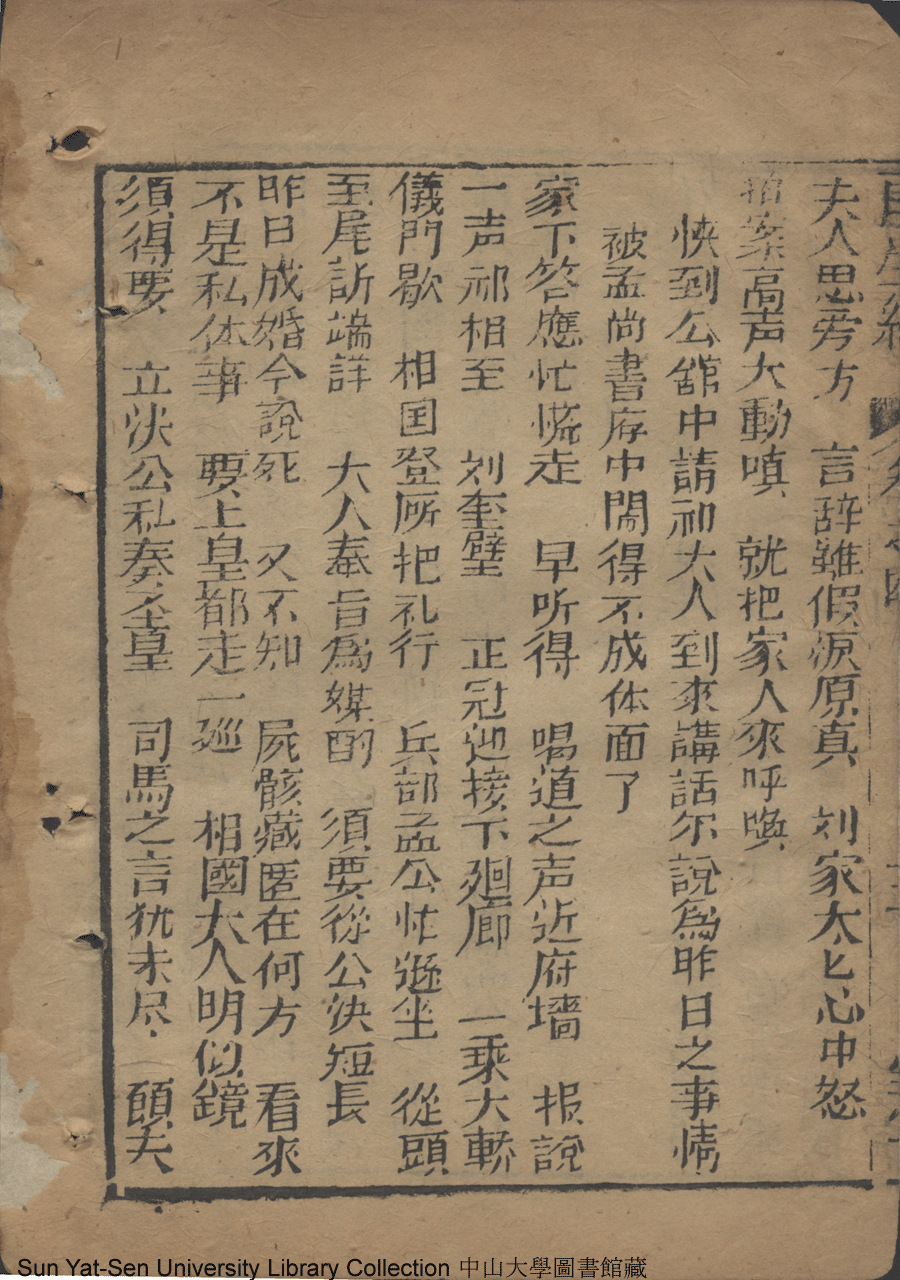 夫人思旁方　言辞雖假原原真　刘家太匕心中怒
拍案高声大動嗔　就把家人來呼喚
快到公舘中請祁大人到來講話尔說為昨日之事情
被孟尚書府中閙得不成体面了
家下答應忙慌走　早听得　喝道之声近府墻　报說
一声祁相至　刘奎壁　正冠迎接下廻廊　一乘大轎
儀門歇　相国登厛把礼行　兵部孟公忙遜坐　從頭
至尾訴端詳　大人奉旨為媒酌　須要從公决短長
昨日成婚今說死　又不知　屍骸藏匿在何方　看來
不是私体事　要上皇都走一廵　相國大人明似鏡
須得要　立決公私奏圣皇　司馬之言犹未尽　顧夫
Sun Yat-Sen University Library Collection 中山大學圖書館藏